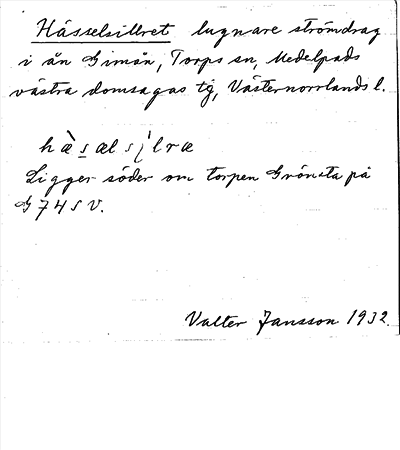 Hässelsillret lugnare strömdrag
i ån Gimån, Torps sn, Medelpads
västra domsagas tg, Västernorrlands l.
hæ̀sælsı̨̀lræ
Ligger söder om torpen Grönsta på
G 74 S V.
Valter Jansson 1932.